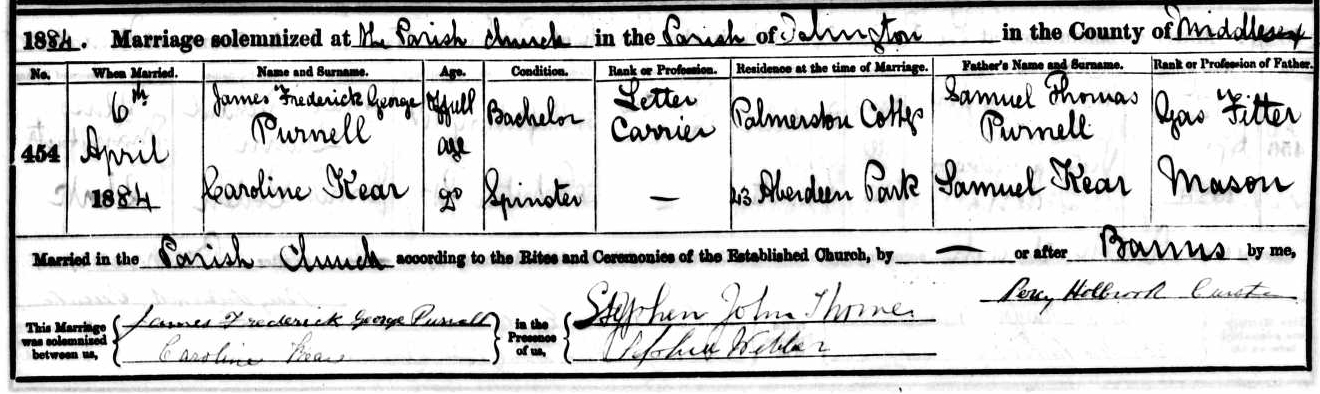 1884. Marriage solemnized at the Parish Church in the Parish of Islington in the County of Middlesex
No. When Married. Name and Surname. Age. Condition. Rank or Profession. Residence at the time of Marriage. Father's Name and Surname. Rank or Profession of Father.
454 6th April 1884 James Frederick George Purnell Of full age Bachelor Letter Carrier Palmerston Cottgs Samuel Thomas Purnell Gas Fitter
Caroline Kear Do Spinster — 23 Aberdeen Park Samuel Kear Mason
Married in the Parish Church according to the Rites and Ceremonies of the Established Church, by — or after Banns by me,
Percy Holbrook Curate
This Marriage was solemnized between us, James Frederick George Purnell in the Presence of us, Stephen John Thorner
Caroline Kear Webber